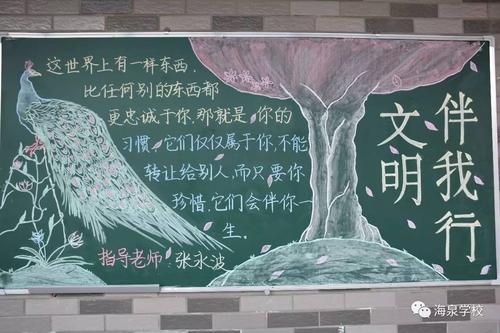 这世界上有一样东西.
比任何别的东西都
更忠诚于你,那就是,你的
习惯,它们仅仅属于你,不能
转让给别人,而只要你
珍惜,它们会伴你一
生.
指导老师:张永波
伴我行
文明
海泉学校